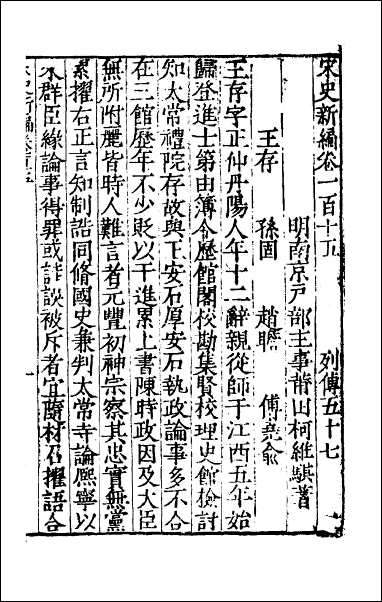 宋史新編卷一百十五 列傳五十七
明南京戶部主事莆田柯維騏著
王存 孫固 趙瞻 傅堯俞
王存字正仲丹陽人年十二辭親從師于江西五年始
歸登進士第由簿令歷館閣校勘集賢校理史館檢討
知太常禮院存故與王安石厚安石執政論事多不合
在三館歷年不少貶以干進累上書陳時政因及大臣
無所附麗皆時人難言者元豐初神宗察其忠實無黨
累擢右正言知制誥同脩國史兼判太常寺論熈寧以
來群臣緣論事得罪或詿誤被斥者宜隨材召擢語合